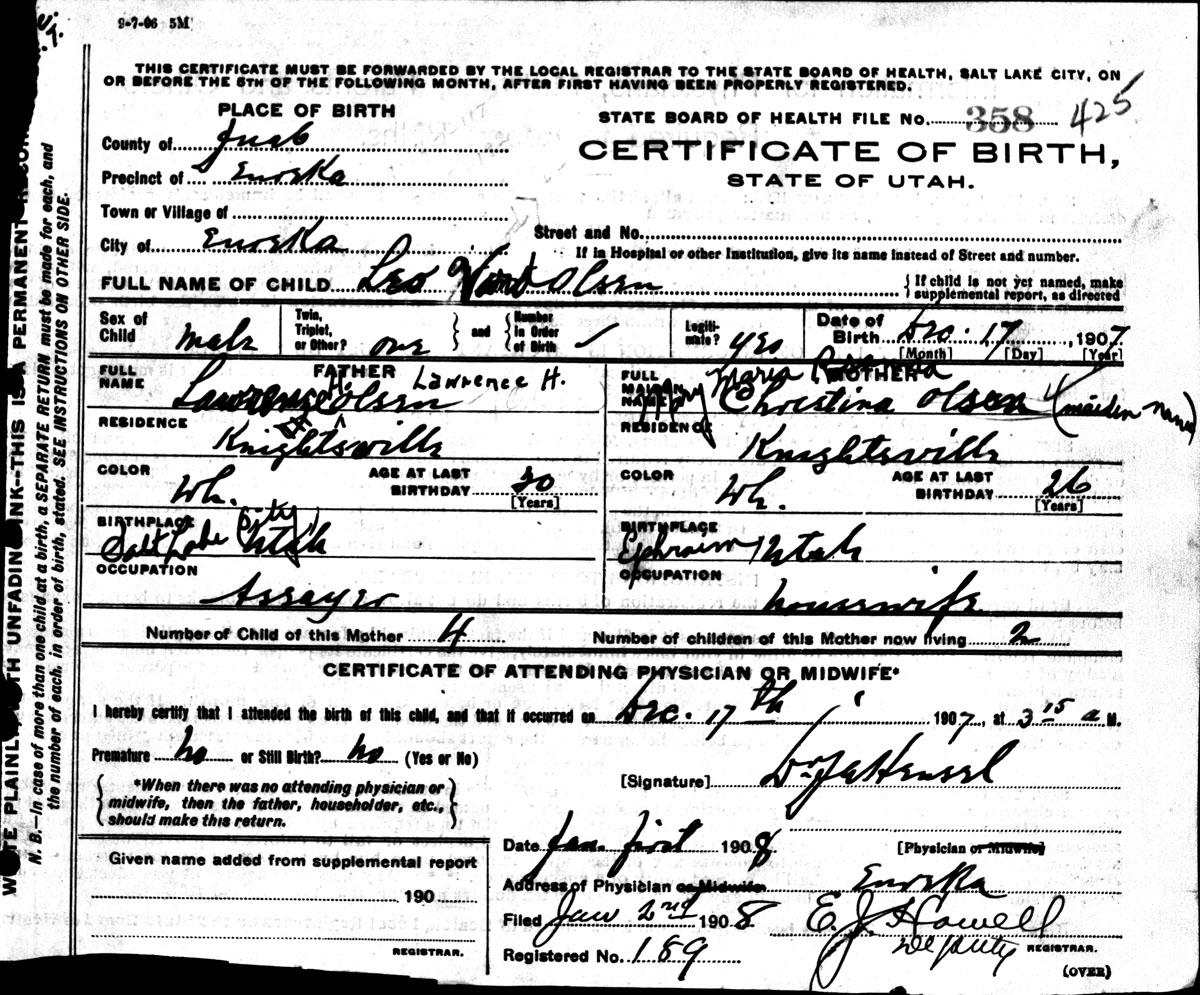 9-7-06 5M
THIS CERTIFICATE MUST BE FORWARDED BY THE LOCAL REGISTRAR TO THE STATE BOARD OF HEALTH, SALT LAKE CITY, ON
OR BEFORE THE 5TH OF THE FOLLOWING MONTH, AFTER FIRST HAVING BEEN PROPERLY REGISTERED.
PLACE OF BIRTH
STATE BOARD OF HEALTH FILE No. 358 425
County of Juab
CERTIFICATE OF BIRTH,
Precinct of Eureka
STATE OF UTAH.
Town or Village of
Street and No.
City of Eureka
If in Hospital or other Institution, give its name instead of Street and number.
FULL NAME OF CHILD Leo Olsen
{If child is not yet named, make
supplemental report, as directed
Sex of Child male
Twin, Triplet, or Other? one } and { Number in Order of Birth
Legiti- mate? yes
Date of Birth Dec. 17, 1907
[Month] [Day] [Year]
FULL NAME FATHER Lawrence H.
Lawrence H. Olsen
FULL MAIDEN NAME MOTHER Maria
Christina Olsen (maiden name)
RESIDENCE Knightsville
RESIDENCE Knightsville
COLOR Wh. AGE AT LAST BIRTHDAY 30 [Years]
COLOR Wh. AGE AT LAST BIRTHDAY 26 [Years]
BIRTHPLACE Salt Lake City Utah
BIRTHPLACE Ephraim Utah
OCCUPATION Assayer
OCCUPATION housewife
Number of Child of this Mother 4 Number of children of this Mother now living 2
CERTIFICATE OF ATTENDING PHYSICIAN OR MIDWIFE*
I hereby certify that I attended the birth of this child, and that it occurred on Dec. 17th 1907, at 3 15 a M.
Premature no or Still Birth? no (Yes or No)
{ *When there was no attending physician or
midwife, then the father, householder, etc.,
should make this return. }
[Signature] Dr J E Hensel
[Physician or Midwife]
Date Jan. first 1908
Given name added from supplemental report
190
REGISTRAR.
Address of Physician or Midwife Eureka
Filed Jan 2nd 1908 E. J. Howell
Registered No. 189 Deputy REGISTRAR.
(OVER)
WRITE PLAINLY WITH UNFADING INK—THIS IS A PERMANENT RECORD
N. B.—In case of more than one child at a birth, a SEPARATE RETURN must be made for each, and
the number of each, in order of birth, stated. SEE INSTRUCTIONS ON OTHER SIDE.